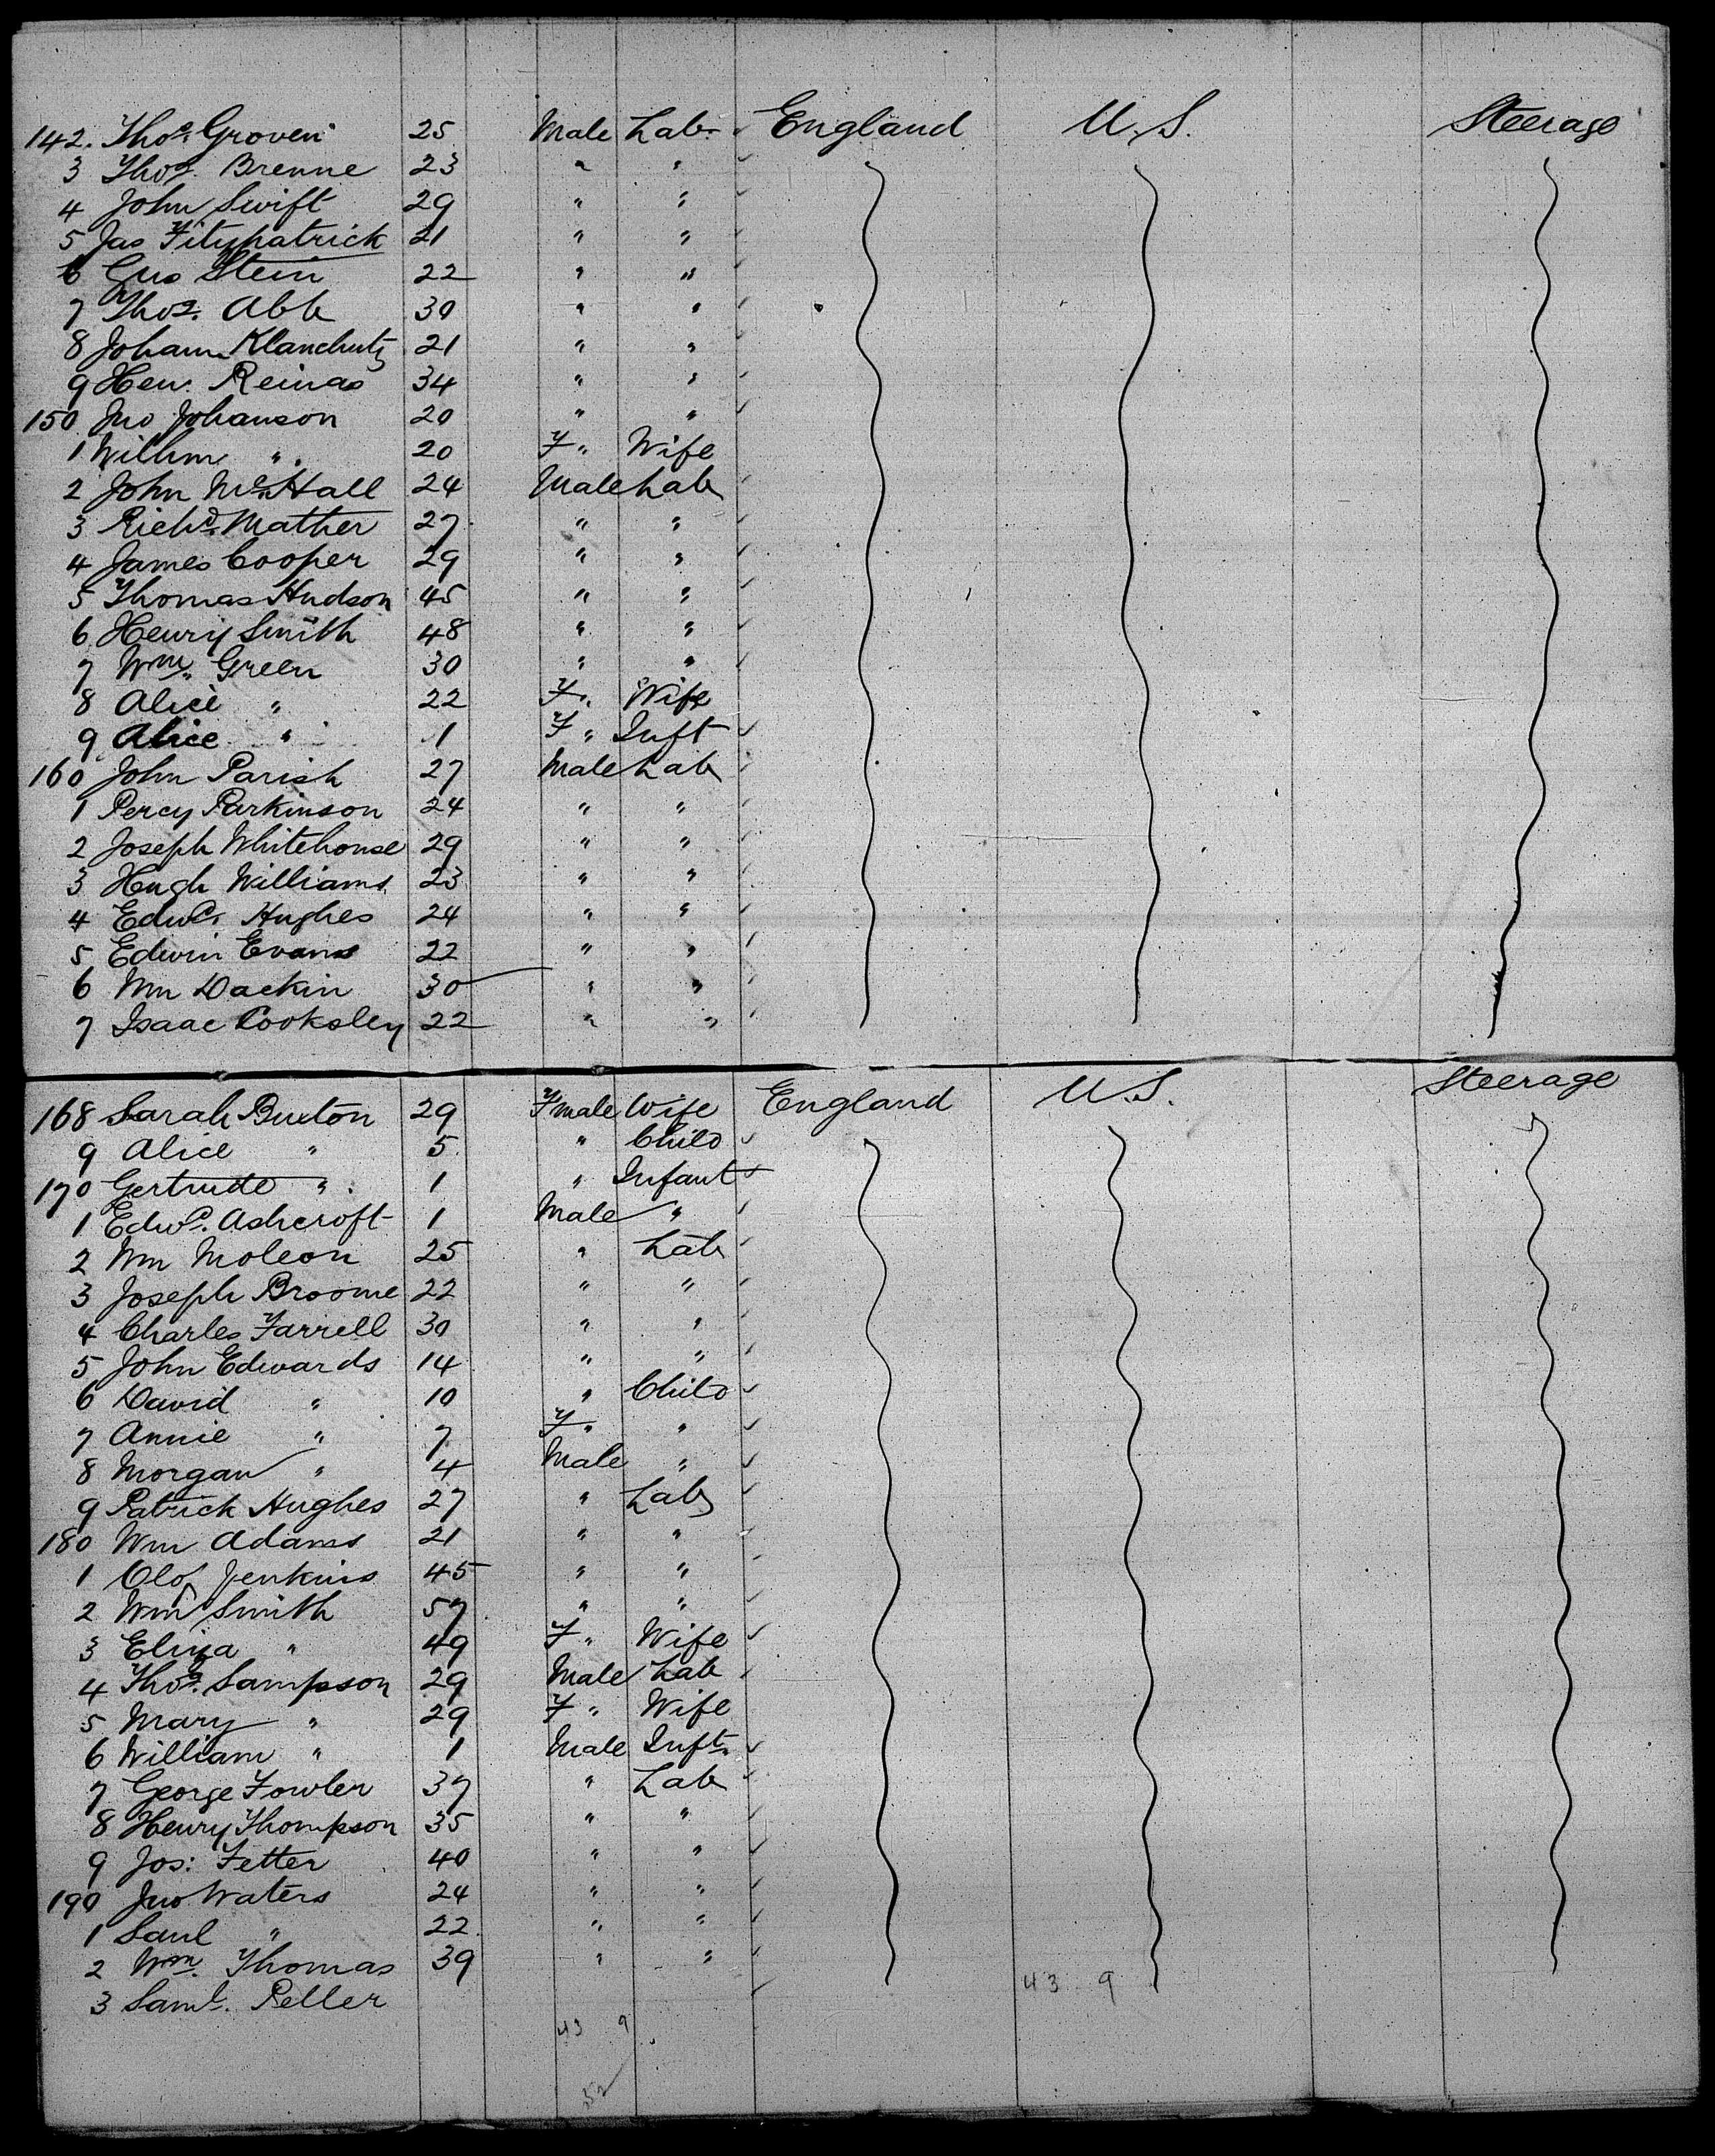 142. Thos. Groven 25 Male Lab England U.S. Steerage
3 Thos. Brenne 23 " "
4 John Swift 29 " "
5 Jas Fitzpatrick 21 " "
6 Gus Stein 22 " "
7 Thos. Abb 30 " "
8 Johann Klanchutz 21 " "
9 Hen. Reinas 34 " "
150 Jno Johanson 20 " "
1 Willim " 20 F " Wife
2 John McHall 24 Male Lab
3 Richd. Mather 27 " "
4 James Cooper 29 " "
5 Thomas Hudson 45 " "
6 Henry Smith 48 " "
7 Wm. Green 30 " "
8 Alice " 22 F " Wife
9 Alice " 1 F " Inft
160 John Parish 27 Male Lab
1 Percy Parkinson 24 " "
2 Joseph Whitehouse 29 " "
3 Hugh Williams 23 " "
4 Edwd. Hughes 24 " "
5 Edwin Evans 22 " "
6 Wm Dackin 30 " "
7 Isaac Cooksley 22 " "
168 Sarah Buxton 29 Fmale Wife England U.S. Steerage
9 Alice " 5 " Child
170 Gertrude " 1 " Infant
1 Edwd. Ashcroft 1 Male "
2 Wm Moleon 25 " Lab
3 Joseph Broome 22 " "
4 Charles Farrell 30 " "
5 John Edwards 14 " "
6 David " 10 " Child
7 Annie " 7 F " "
8 Morgan " 4 Male "
9 Patrick Hughes 27 " Lab
180 Wm Adams 21 " "
1 Olof Jenkins 45 " "
2 Wm Smith 57 " "
3 Eliza " 49 F " Wife
4 Thos. Sampson 29 Male Lab
5 Mary " 29 F " Wife
6 William " 1 Male Inft.
7 George Fowler 37 " Lab
8 Henry Thompson 35 " "
9 Jos: Fetter 40 " "
190 Jno Waters 24 " "
1 Saul " 22 " "
2 Wm. Thomas 39 " "
3 Saml. Peller
43 9
43 9
52